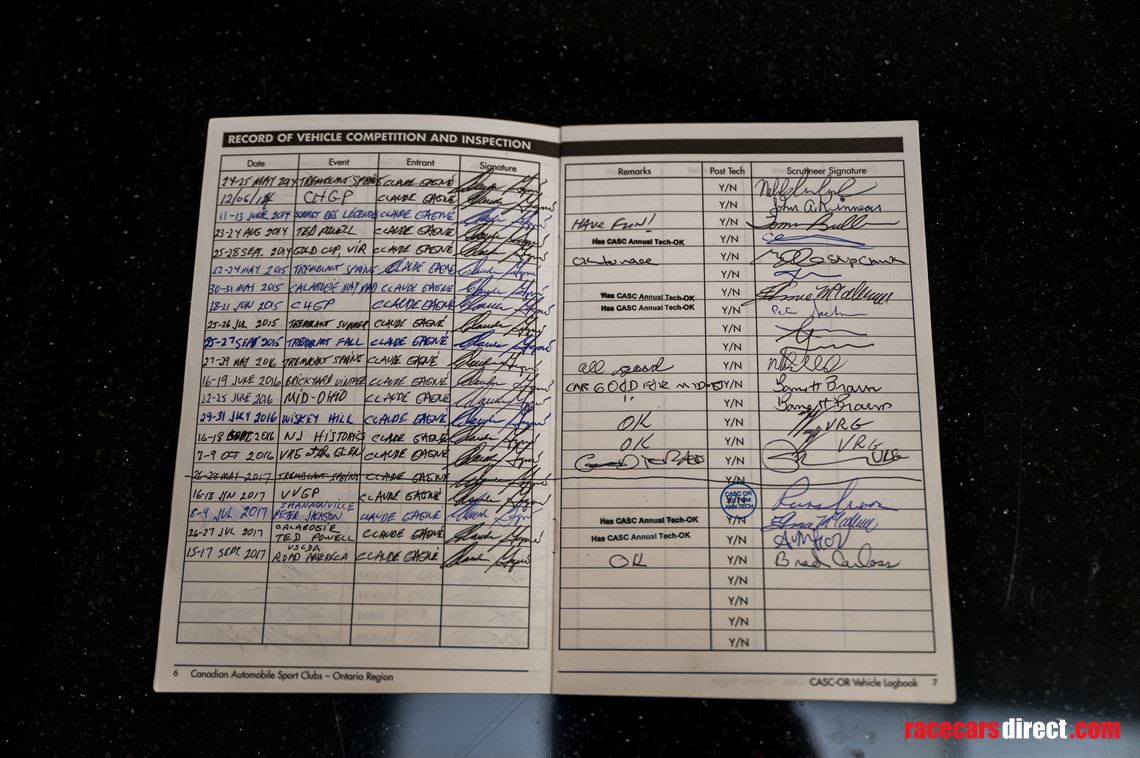 RECORD OF VEHICLE COMPETITION AND INSPECTION
Date Event Entrant Signature
24-25 MAY 2014 TREMBLANT SPRING CLAUDE GAGNÉ
12/06/14 CHGP CLAUDE GAGNÉ
11-13 JUNE 2014 SOMMET DES LÉGENDES CLAUDE GAGNÉ
23-24 AUG 2014 TED POWELL CLAUDE GAGNÉ
25-28 SEPT. 2014 GOLD CUP, VIR CLAUDE GAGNÉ
22-24 MAY 2015 TREMBLANT SPRING CLAUDE GAGNÉ
30-31 MAY 2015 CALABOGIE MAY CLAUDE GAGNÉ
18-21 JUN 2015 CHGP CLAUDE GAGNÉ
25-26 JUL 2015 TREMBLANT SUMMER CLAUDE GAGNÉ
25-27 SEPT 2015 TREMBLANT FALL CLAUDE GAGNÉ
27-29 MAY 2016 TREMBLANT SPRING CLAUDE GAGNÉ
16-19 JUNE 2016 BRICKYARD VINTAGE CLAUDE GAGNÉ
22-25 JUNE 2016 MID-OHIO CLAUDE GAGNÉ
29-31 JULY 2016 WISKEY HILL CLAUDE GAGNÉ
16-18 SEPT 2016 NJ HISTORICS CLAUDE GAGNÉ
7-9 OCT 2016 CLAUDE GAGNÉ
26-28 MAY 2017 TREMBLANT SPRING CLAUDE GAGNÉ
16-18 JUN 2017 VVGP CLAUDE GAGNÉ
SHANNONVILLE
8-9 JUL 2017 PETER JACKSON CLAUDE GAGNÉ
CALABOGIE
26-27 JUL 2017 TED POWELL CLAUDE GAGNÉ
VSCDA
15-17 SEPT. 2017 ROAD AMERICA CLAUDE GAGNÉ
6 Canadian Automobile Sport Clubs – Ontario Region
Remarks Post Tech Scrutineer Signature
Y/N
Y/N
HAVE FUN! Y/N
Has CASC Annual Tech-OK Y/N
Y/N
Y/N
Has CASC Annual Tech-OK Y/N
Has CASC Annual Tech-OK Y/N
Y/N
Y/N
all good Y/N
CAR GOOD FOR Y/N Barrett Brown
Y/N Barrett Brown
OK Y/N VRG
OK Y/N VRG
Y/N VRG
Y/N
CASC OR ANN TECH Y/N
Has CASC Annual Tech-OK Y/N
Has CASC Annual Tech-OK Y/N
OK Y/N Brad
Y/N
Y/N
Y/N
Y/N
CASC-OR Vehicle Logbook 7
racecarsdirect.com